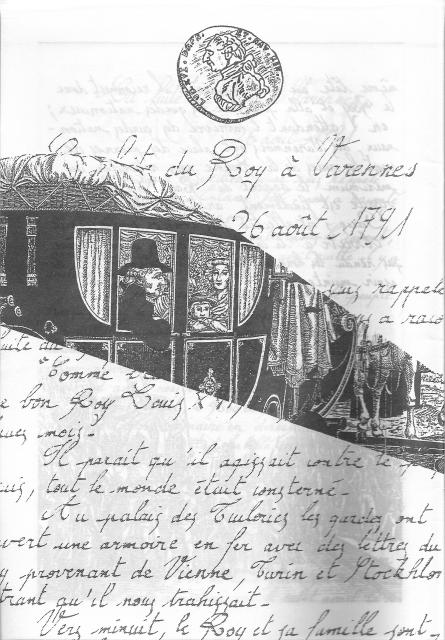 La fuite du Roy à Varennes
26 août 1791
rappele
a rais
uite du
Comme
e bon Roy Louis XVI
ues mois.
Il parait qu'il agissait contre le
uis, tout le monde était consterné.
Au palais des Tuileries les gardes ont
uvert une armoire en fer avec des lettres du
y provenant de Vienne, Turin et Stockhlor
trant qu'il nous trahissait.
Vers minuit, le Roy et sa famille sont